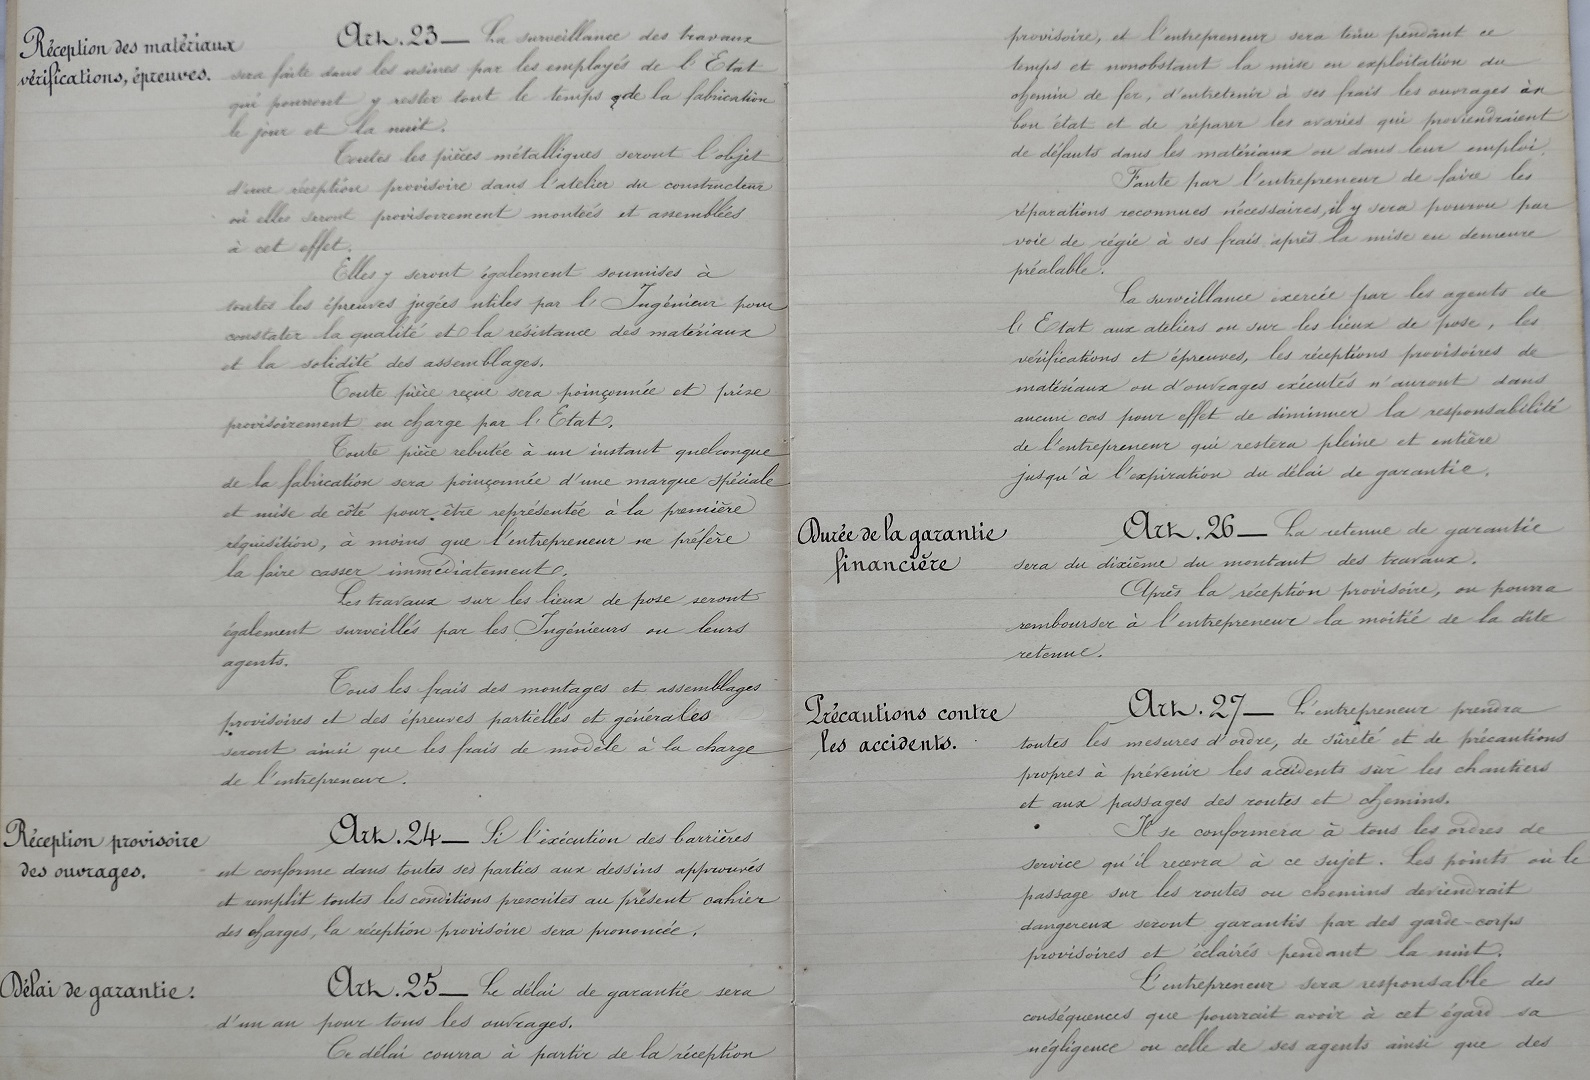 Réception des matériaux
vérifications, épreuves.
Art. 23 — La surveillance des travaux
sera faite dans les usines par les employés de l'Etat
qui pourront y rester tout le temps de la fabrication
le jour et la nuit.
Toutes les pièces métalliques seront l'objet
d'une réception provisoire dans l'atelier du constructeur
où elles seront provisoirement montées et assemblées
à cet effet.
Elles y seront également soumises à
toutes les épreuves jugées utiles par l'Ingénieur pour
constater la qualité et la résistance des matériaux
et la solidité des assemblages.
Toute pièce reçue sera poinçonnée et prise
provisoirement en charge par l'Etat.
Toute pièce rebutée à un instant quelconque
de la fabrication sera poinçonnée d'une marque spéciale
et mise de côté pour être représentée à la première
réquisition, à moins que l'entrepreneur ne préfère
la faire casser immédiatement.
Les travaux sur les lieux de pose seront
également surveillés par les Ingénieurs ou leurs
agents.
Tous les frais des montages et assemblages
provisoires et des épreuves partielles et générales
seront ainsi que les frais de modèle à la charge
de l'entrepreneur.
Réception provisoire
des ouvrages.
Art. 24 — Si l'exécution des barrières
est conforme dans toutes ses parties aux dessins approuvés
et remplit toutes les conditions prescrites au présent cahier
des charges, la réception provisoire sera prononcée.
Délai de garantie.
Art. 25 — Le délai de garantie sera
d'un an pour tous les ouvrages.
Ce délai courra à partir de la réception
provisoire, et l'entrepreneur sera tenu pendant ce
temps et nonobstant la mise en exploitation du
chemin de fer, d'entretenir à ses frais les ouvrages en
bon état et de réparer les avaries qui proviendraient
de défauts dans les matériaux ou dans leur emploi.
Faute par l'entrepreneur de faire les
réparations reconnues nécessaires, il y sera pourvu par
voie de régie à ses frais après la mise en demeure
préalable.
La surveillance exercée par les agents de
l'Etat aux ateliers ou sur les lieux de pose, les
vérifications et épreuves, les réceptions provisoires de
matériaux ou d'ouvrages exécutés n'auront dans
aucun cas pour effet de diminuer la responsabilité
de l'entrepreneur qui restera pleine et entière
jusqu'à l'expiration du délai de garantie.
Durée de la garantie
financière
Art. 26 — La retenue de garantie
sera du dixième du montant des travaux.
Après la réception provisoire, on pourra
rembourser à l'entrepreneur la moitié de la dite
retenue.
Précautions contre
les accidents.
Art. 27 — L'entrepreneur prendra
toutes les mesures d'ordre, de sûreté et de précautions
propres à prévenir les accidents sur les chantiers
et aux passages des routes et chemins.
Il se conformera à tous les ordres de
service qu'il recevra à ce sujet. Les points où le
passage sur les routes ou chemins deviendrait
dangereux seront garantis par des garde-corps
provisoires et éclairés pendant la nuit.
L'entrepreneur sera responsable des
conséquences que pourrait avoir à cet égard sa
négligence ou celle de ses agents ainsi que des